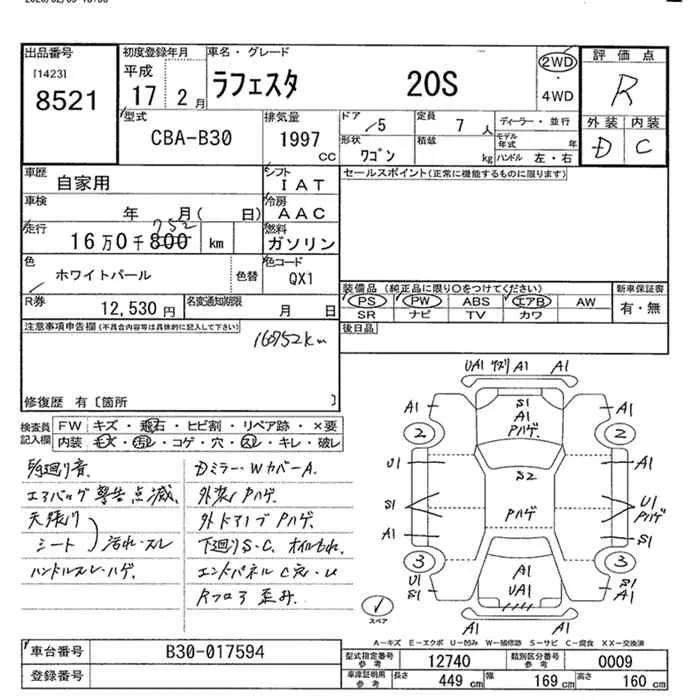 出品番号
[1423]
8521
初度登録年月
平成
17 2月
車名・グレード
ラフェスタ 20S
2WD
・
4WD
評価点
R
外装 内装
D C
型式
CBA-B30
排気量
1997
CC
ドア
/5
定員
7人
ディーラー・並行
形状
ワゴン
積載
kg
モデル年式 年
ハンドル 左・右
車歴
自家用
シフト
IAT
セールスポイント(正常に機能するものに限ります)
車検
年 月( 日)
冷房
AAC
走行
752
16万0千800 km
燃料
ガソリン
色
ホワイトパール
色替
色コード
QX1
装備品(純正品に限り○をつけてください)
新車保証書
PS PW ABS エアB AW
有・無
SR ナビ TV カワ
R券
12,530円
名変通知期限
月 日
後日品
注意事項申告欄(不具合内容等は具体的に記入して下さい)
160752km
修復歴 有〔箇所 〕
検査員記入欄
FW キズ・飛石・ヒビ割・リペア跡・×要
内装 モズ・汚れ・コゲ・穴・スレ・キレ・破レ
エアバッグ警告点滅.
天張り
シート
汚れ・スレ
ハンドルスレ・ハゲ.
Dミラー・WカバーA.
外装Pハゲ
外ドアノブPハゲ.
下廻りS・C. オイルもれ.
エンドパネルC穴・U
Rフロア歪み.
UA1 A1 A1
A1
S1
A1
Pハゲ.
A1
2
2
U1
S2
A1
S1
Pハゲ
U1
Pハゲ
A1
S1
3
3
U1
S1
A1
UA1
S1
A1
A1 A1
スペア
A-キズ E-エクボ U-凹み W-補修跡 S-サビ C-腐食 XX-交換済
車台番号
B30-017594
登録番号
型式指定番号
参考
12740
類別区分番号
参考
0009
車庫証明用
参考
長さ
449 cm
幅
169 cm
高さ
160 cm